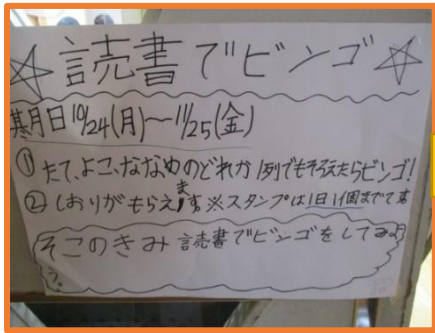 ☆読書でビンゴ☆
期日10/24(月)〜11/25(金)
①たて、よこ、ななめのどれか1列でもそろえたらビンゴ!
②しおりがもらえます※スタンプは1日1個までです
そこのきみ読書でビンゴをしてみよう。